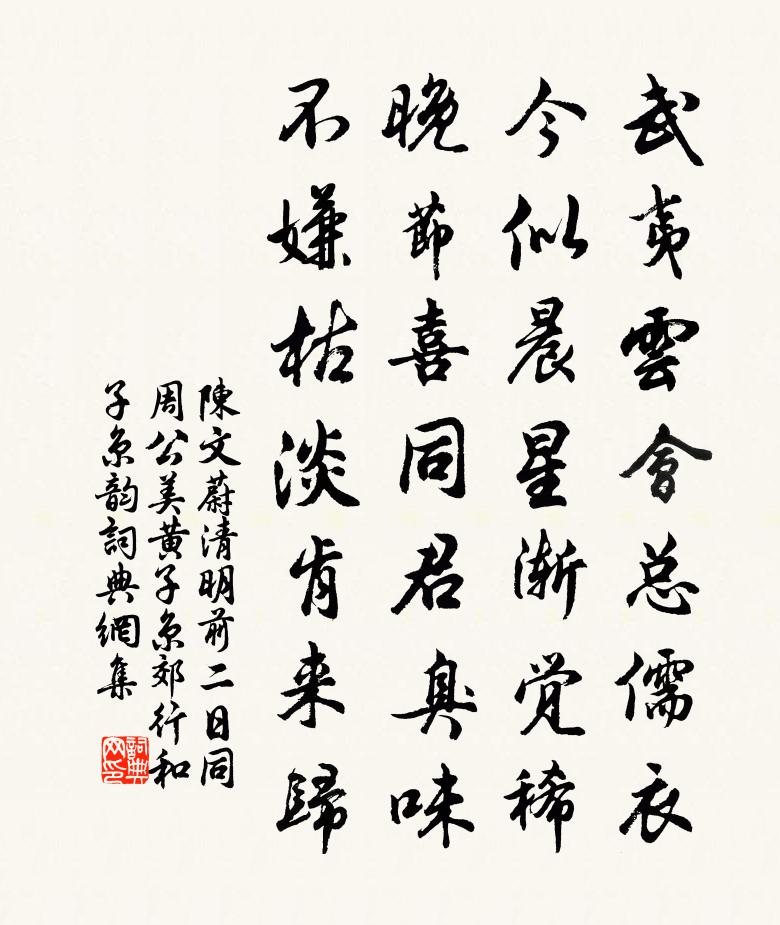 武夷雲會总儒衣
今似晨星渐觉稀
晚節喜同君臭味
不嫌枯淡肯来歸
陳文蔚清明前二日同
周公美黄子京郊行和
子京韵詞典網集
詞典网印